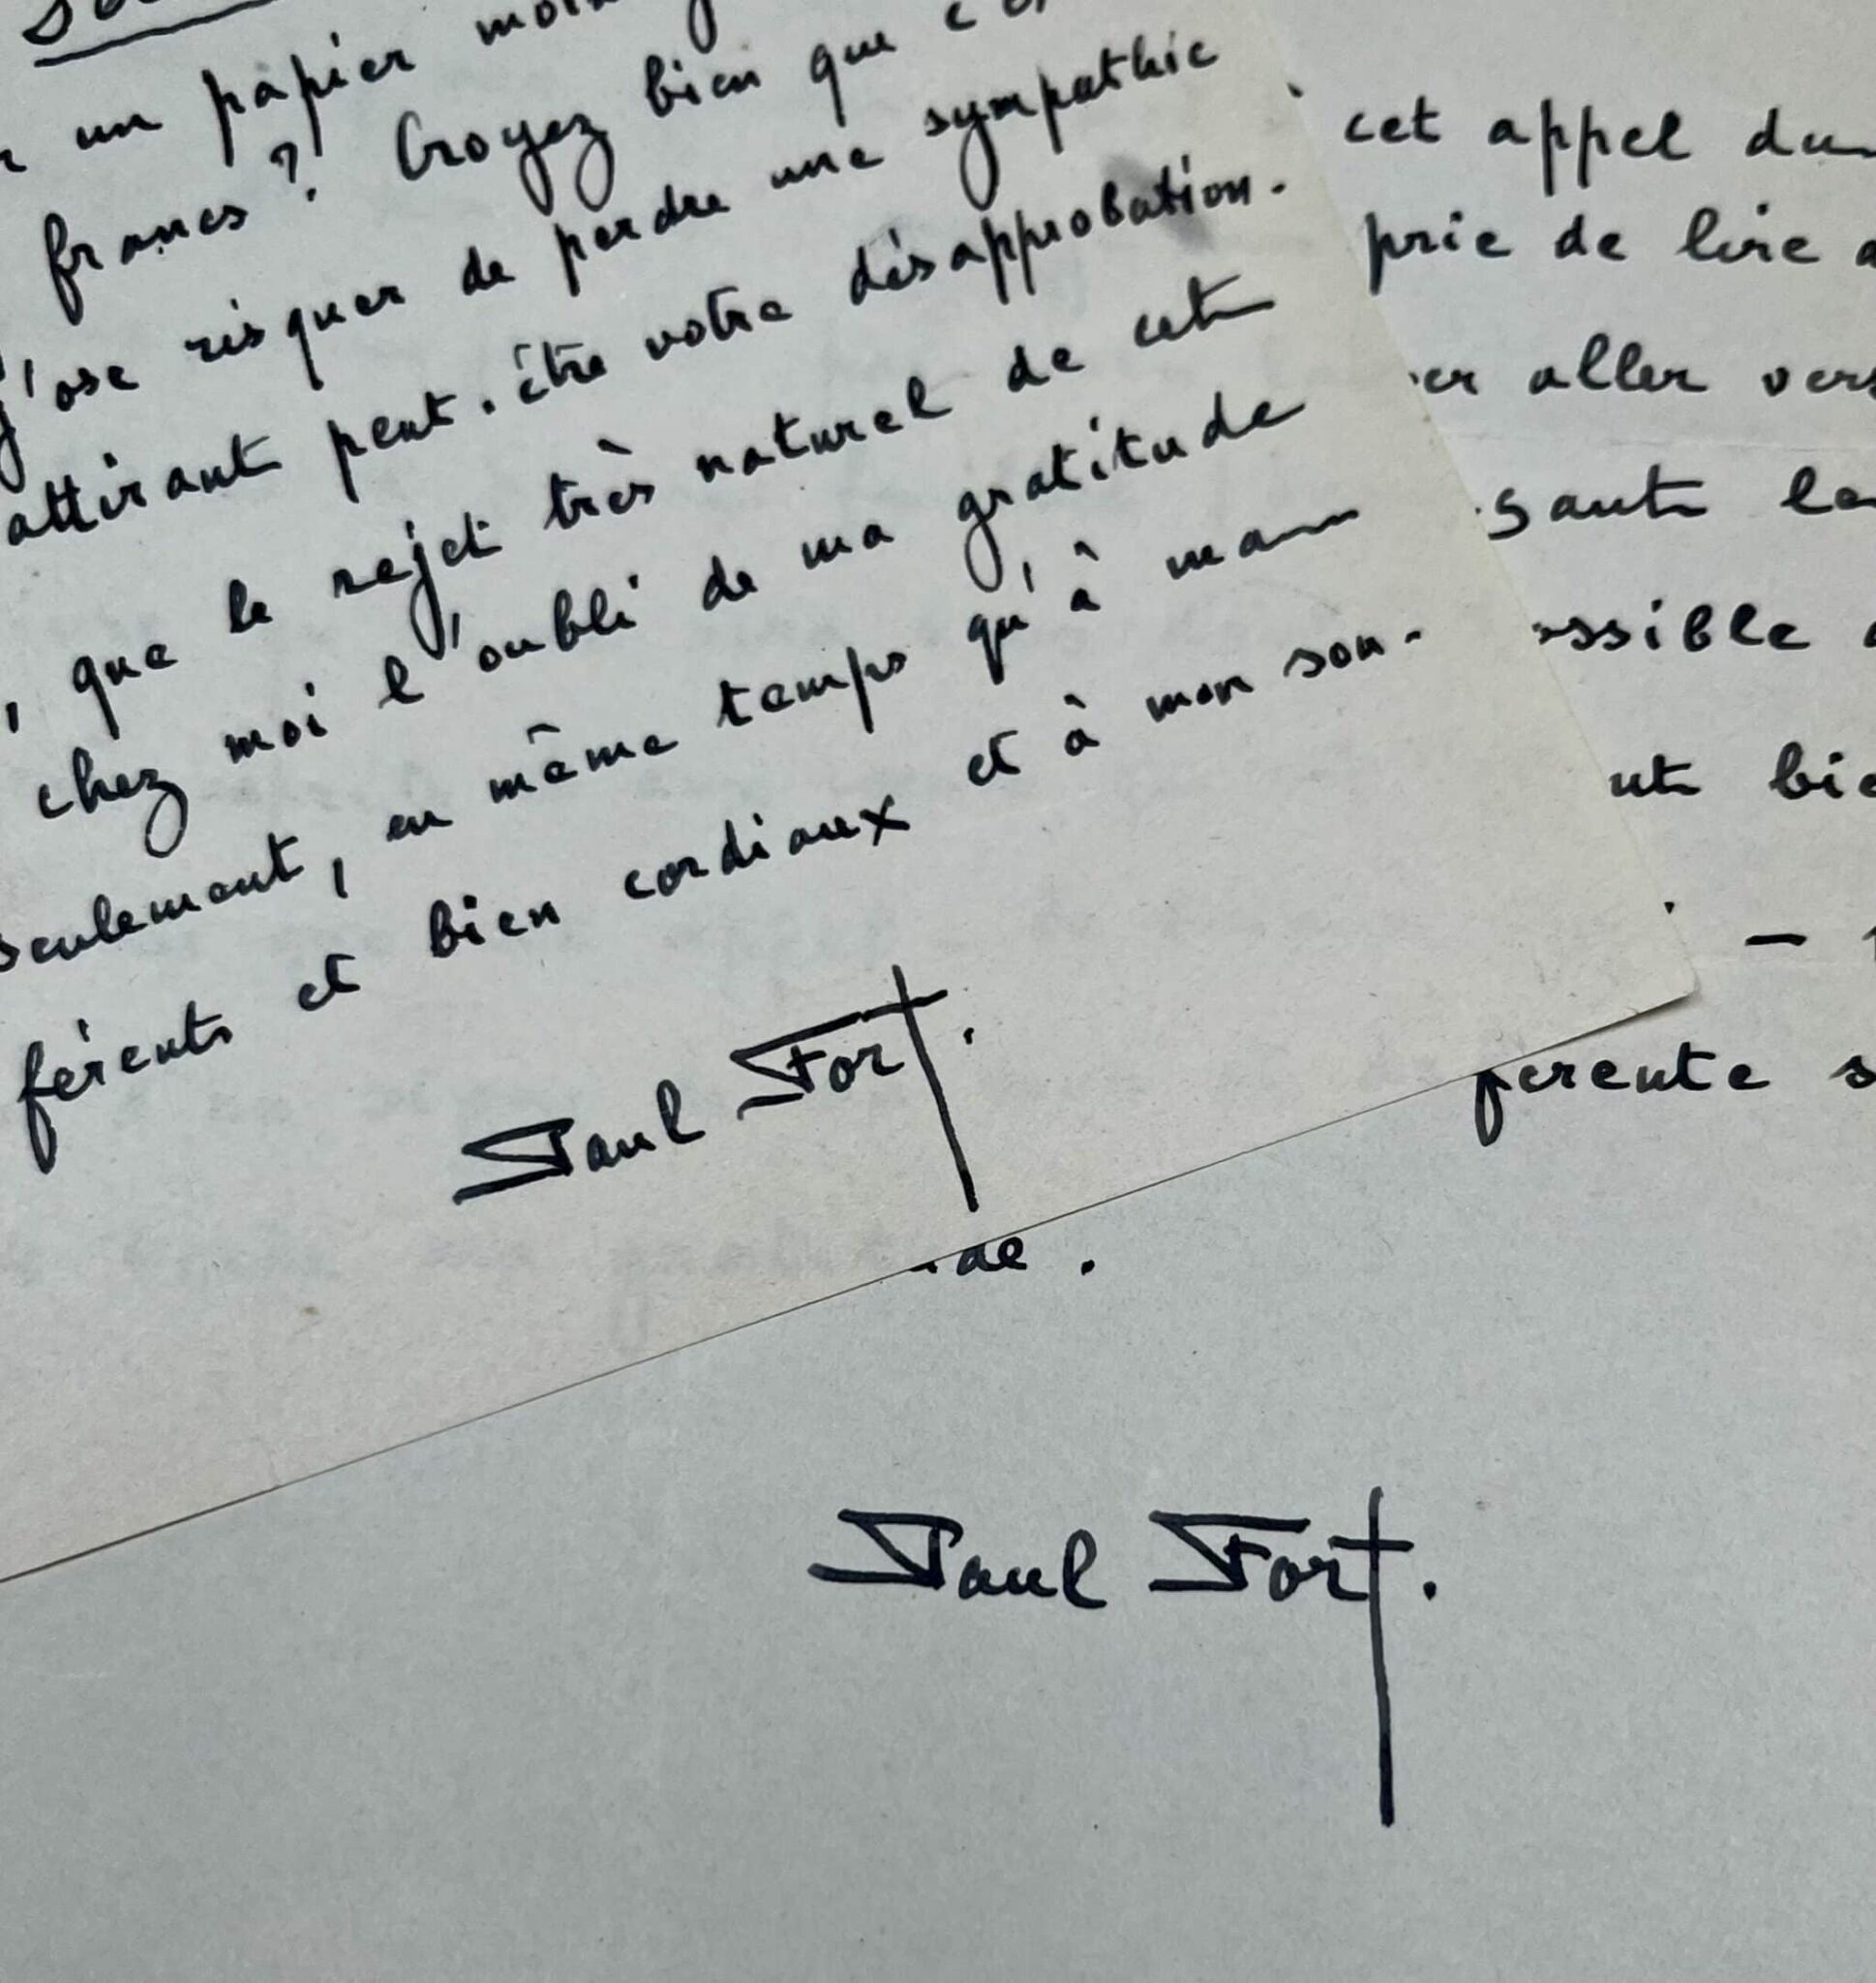 un papier
francs ? Croyez bien que
j'ose risquer de perdre une sympathie
attirant peut-être votre désapprobation.
, que le rejet très naturel de cet
chez moi l'oubli de ma gratitude
seulement, en même temps qu'à
férents et bien cordiaux et à mon sou-
Paul Fort.
cet appel
prie de lire
er aller vers
sante
ssible
nt
férente s
de.
Paul Fort.